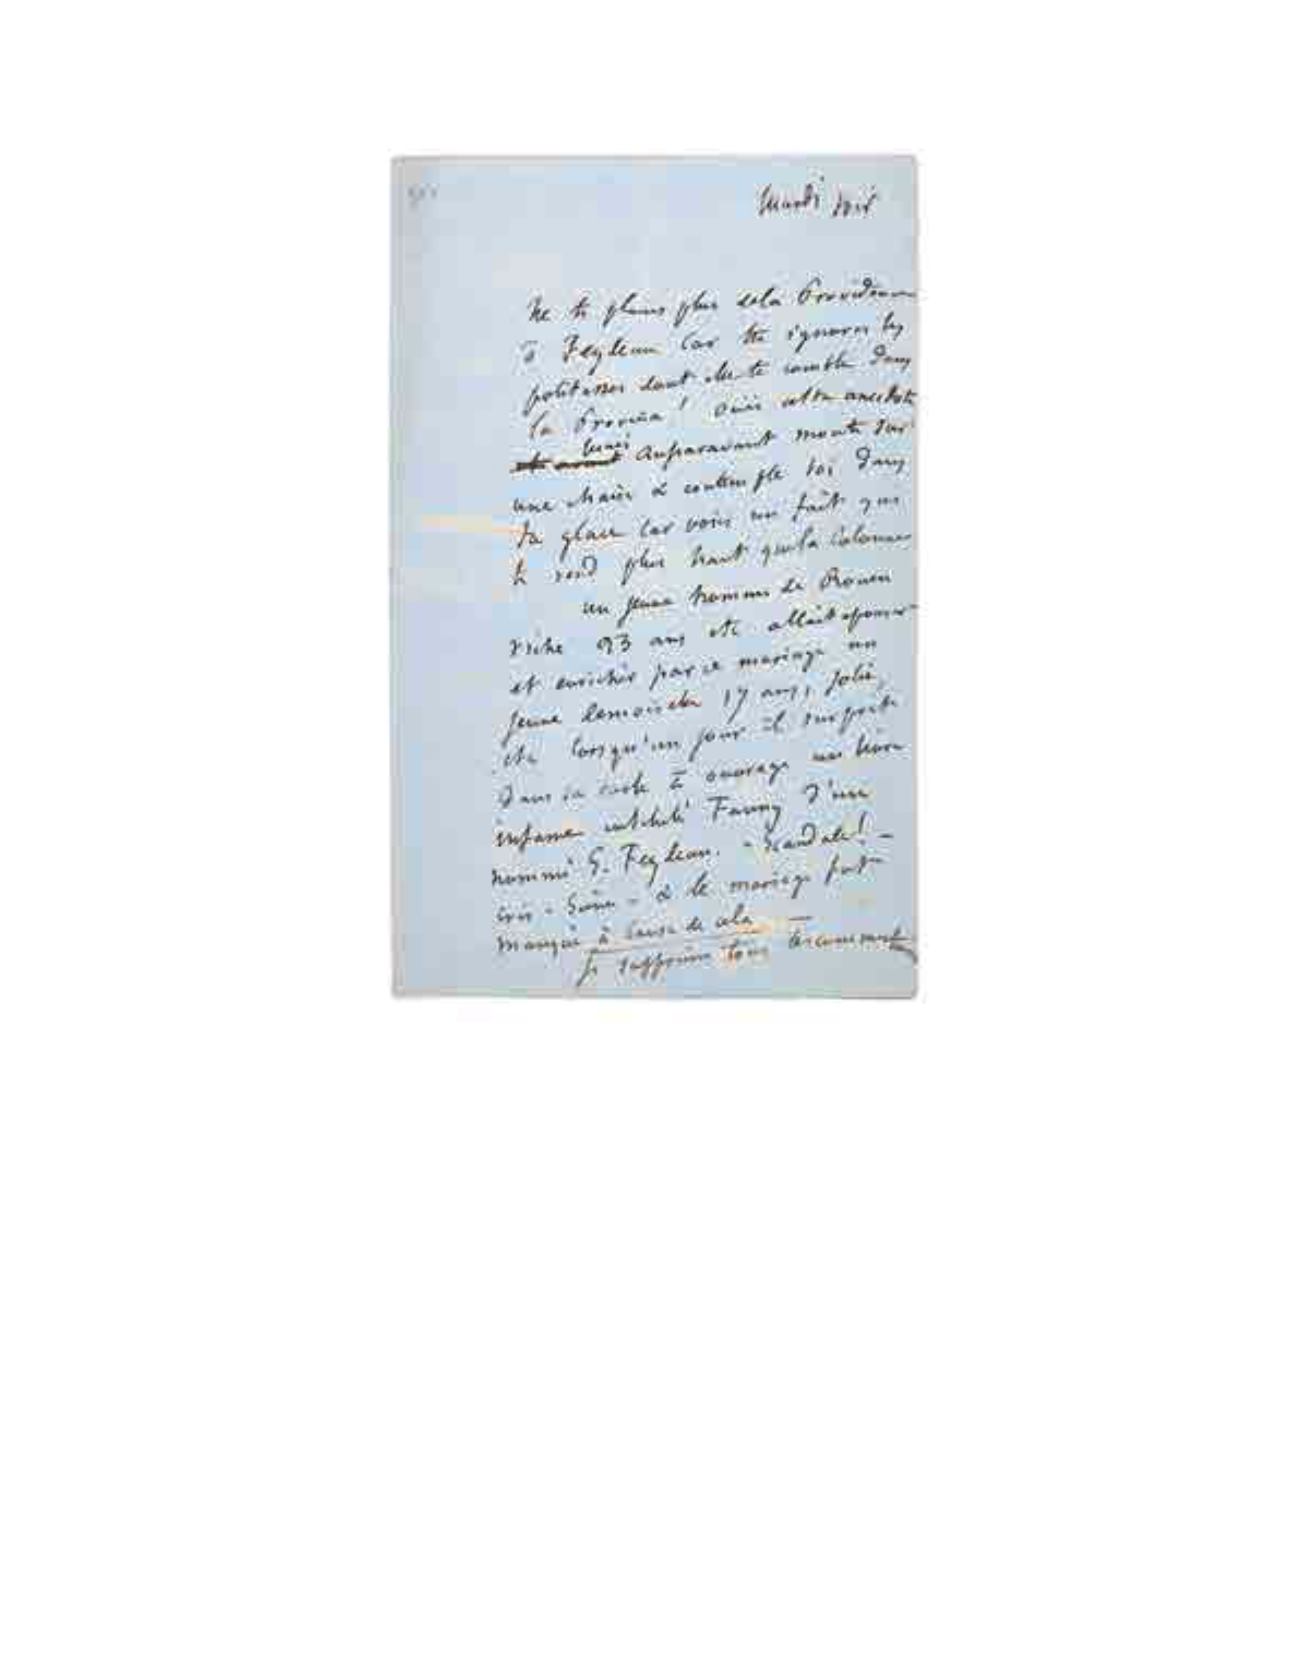 Mardi soir
Ne te plains plus de la Providence
ô Feydeau car tu ignores les
politesses dont elle te comble dans
la Province ! Ouïs cette anecdote
mais auparavant monte sur
une chaise & contemple toi dans
ta glace car voici un fait qui
te rend plus haut que la Colonne
un jeune homme de Rouen
riche 23 ans etc allait épouser
et enrichir par ce mariage une
jeune demoiselle 17 ans, jolie,
etc lorsqu'un jour il surprit
dans sa boîte à ouvrage un livre
infâme intitulé Fanny d'un
nommé G. Feydeau. - Scandale ! -
cris - scène - & le mariage fut
manqué à cause de cela —
Je supprime tous les comment